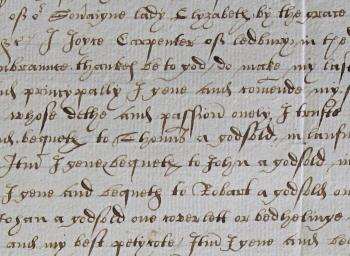 of or Soverayne lady Elyzabeth by the grace
I Joyce Carpenter of ledbury in the
thanked be to god do make my last
and pryncypally I geve and comende my
whose dethe and passion onely I truste
bequeth to Thomas a godsold, in
Itm I geve bequeth to John a godsold
I geve and bequeth to Robart a godsold on
a godsold one coverlett or bedhelinge
and my best petycote Itm I geve and be